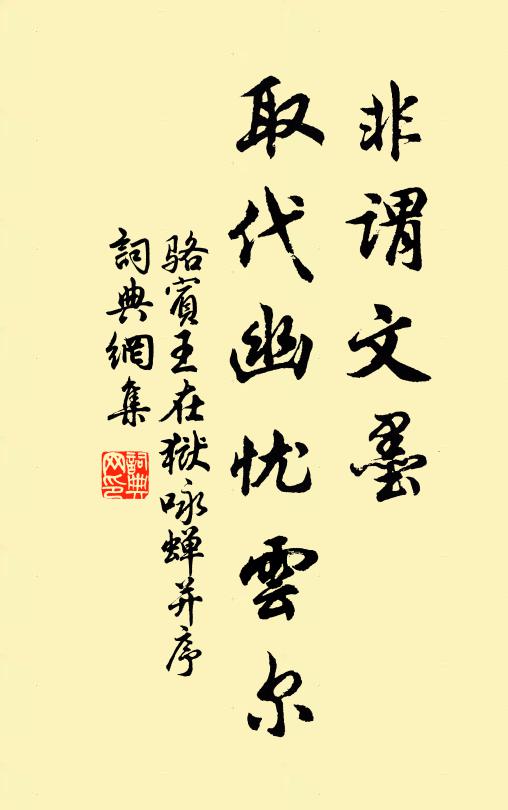 非谓文墨
取代幽忧雲尔
骆賓王在獄咏蝉并序
詞典網集
詞典
网印